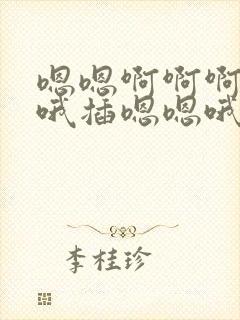 嗯嗯啊啊啊
哦插嗯嗯哦
李桂珍